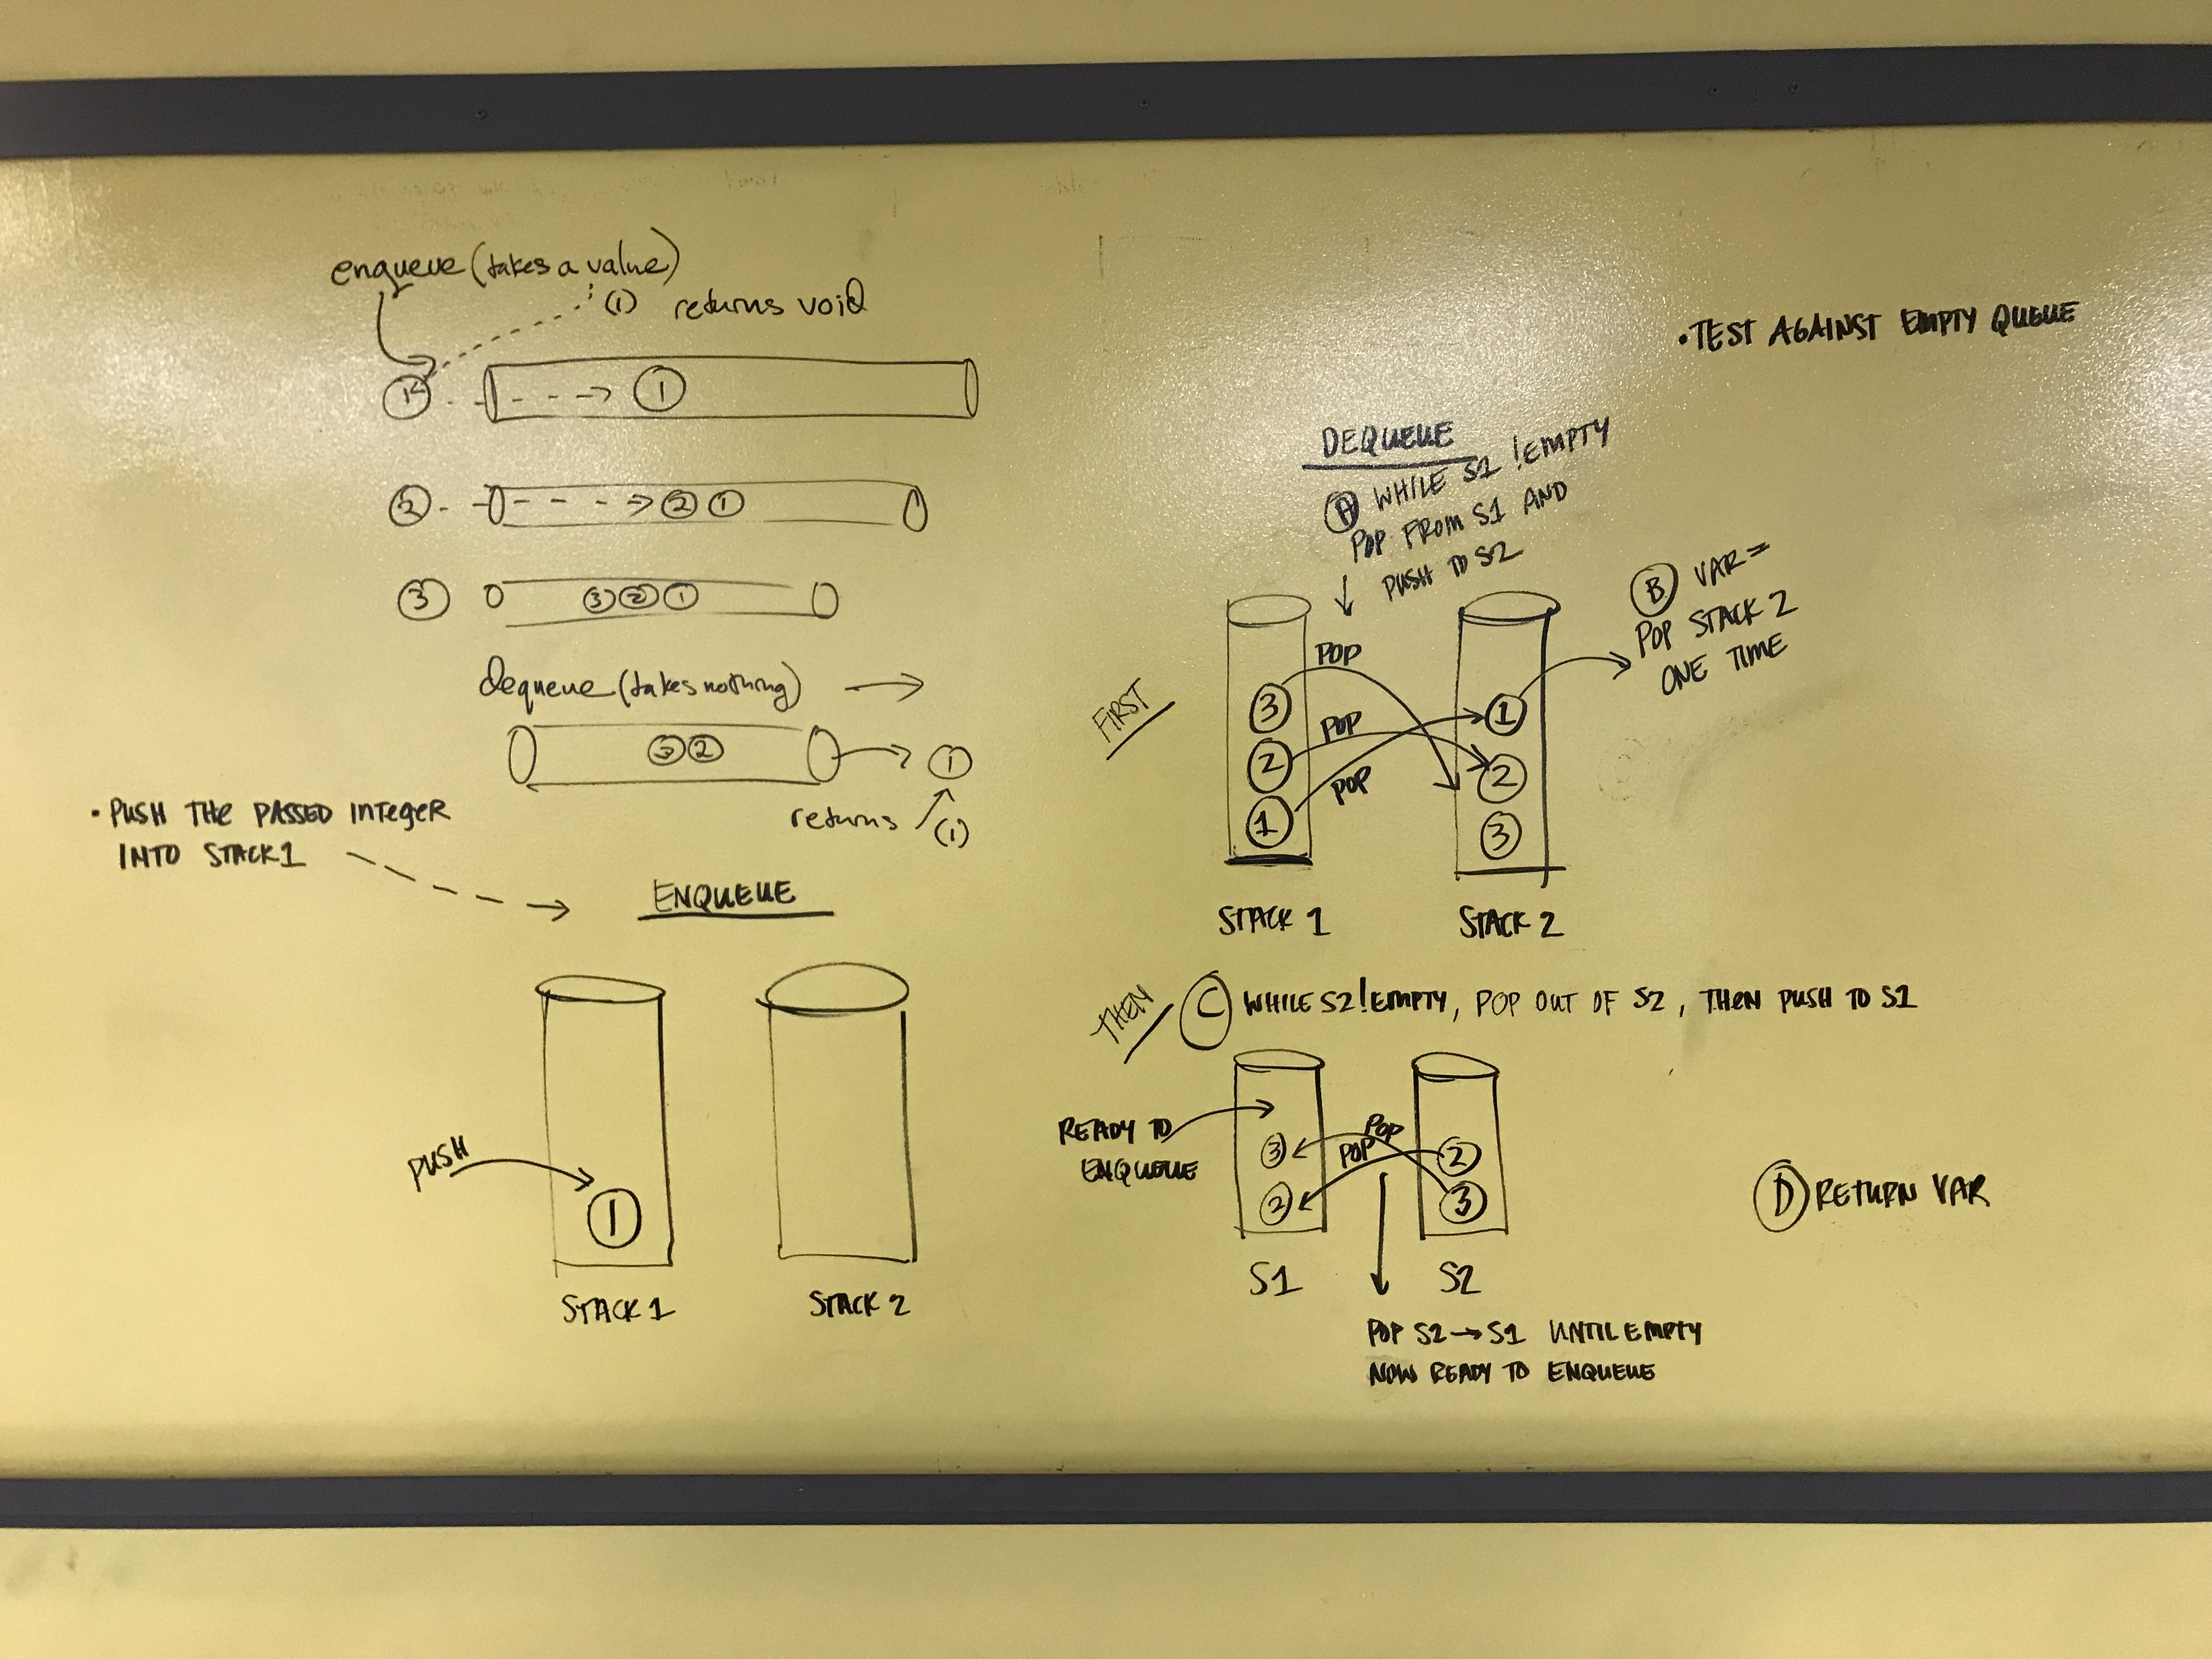 enqueue (takes a value)
(1) returns void
1 1
2 2 1
3 3 2 1
dequeue (takes nothing)
3 2 1
returns (1)
• PUSH THE PASSED INTEGER
INTO STACK 1
ENQUEUE
PUSH
1
STACK 1 STACK 2
• TEST AGAINST EMPTY QUEUE
DEQUEUE
A WHILE S1 !EMPTY
POP FROM S1 AND
PUSH TO S2
B VAR =
POP STACK 2
ONE TIME
FIRST
POP
3 1
POP
2 2
POP
1 3
STACK 1 STACK 2
THEN
C WHILE S2 !EMPTY, POP OUT OF S2, THEN PUSH TO S1
READY TO
ENQUEUE
POP
3 POP 2
2 3
S1 S2
POP S2 → S1 UNTIL EMPTY
NOW READY TO ENQUEUE
D RETURN VAR